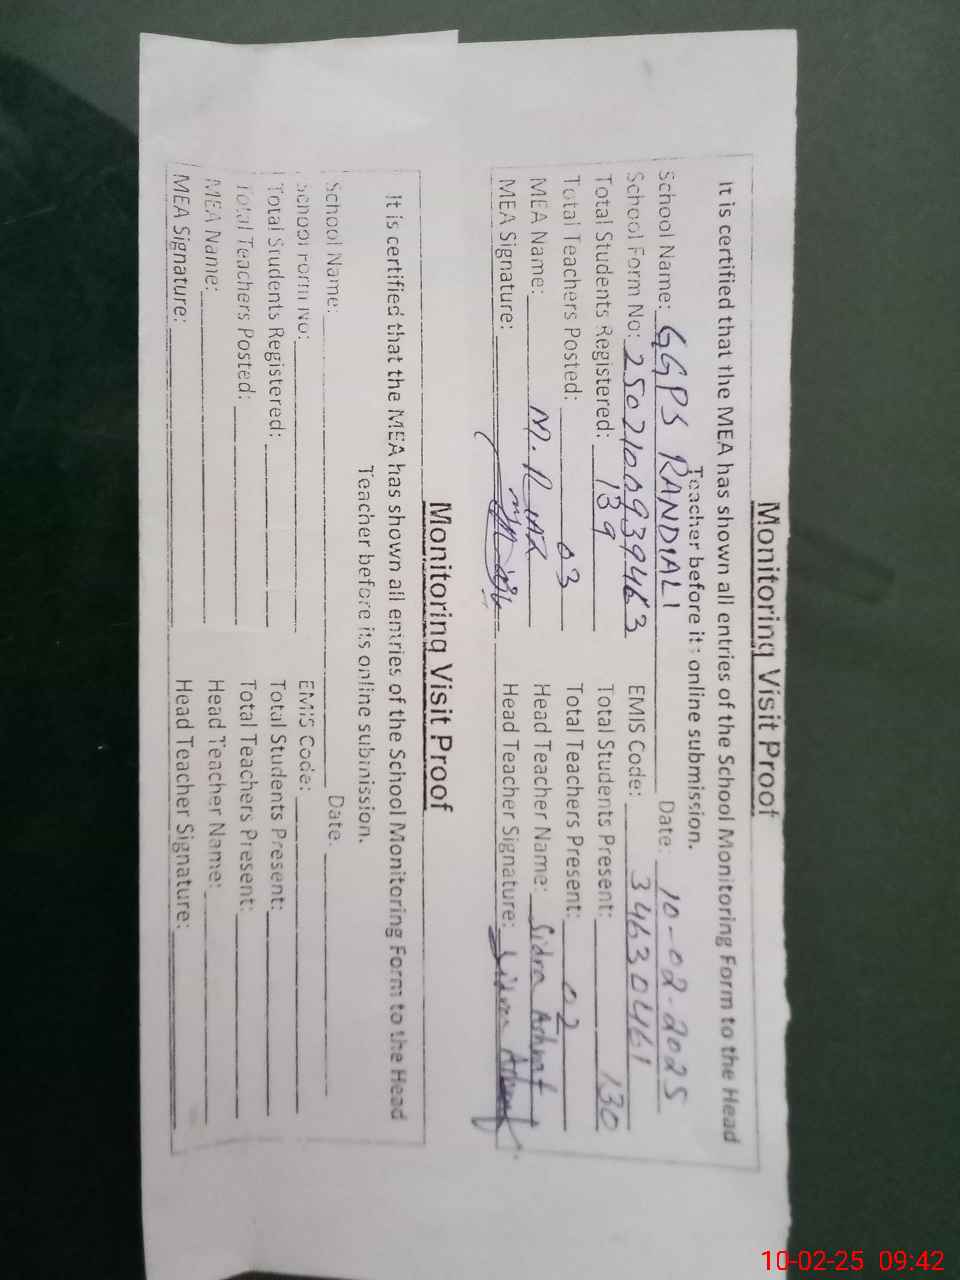 Monitoring Visit Proof
It is certified that the MEA has shown all entries of the School Monitoring Form to the Head
Teacher before its online submission.
School Name: GGPS RANDIALI Date: 10-02-2025
School Form No: 2502100939463 EMIS Code: 34630461
Total Students Registered: 139 Total Students Present: 130
Total Teachers Posted: 03 Total Teachers Present: 02
MEA Name: M. RIAZ Head Teacher Name: Sidra Ashraf
MEA Signature: Head Teacher Signature: Sidra Ashraf
Monitoring Visit Proof
It is certified that the MEA has shown all entries of the School Monitoring Form to the Head
Teacher before its online submission.
School Name: Date:
School Form No: EMIS Code:
Total Students Registered: Total Students Present:
Total Teachers Posted: Total Teachers Present:
MEA Name: Head Teacher Name:
MEA Signature: Head Teacher Signature:
10-02-25 09:42